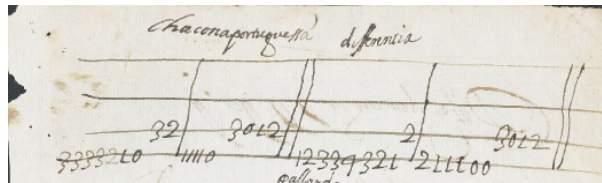 Chaconaportuguessa differencia
32 3012 2 3012
3333210 11110 12339321 211100